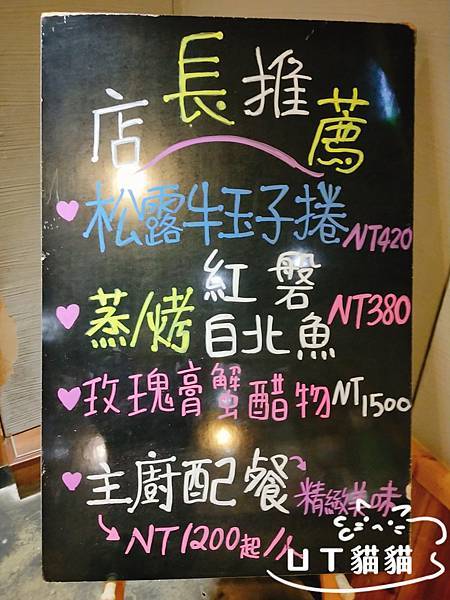 店長推薦
松露牛玉子捲 NT420
蒸/烤 紅磐 白北魚 NT380
玫瑰膏蟹醋物 NT1500
主廚配餐 精緻美味
NT1200起/人
UT貓貓